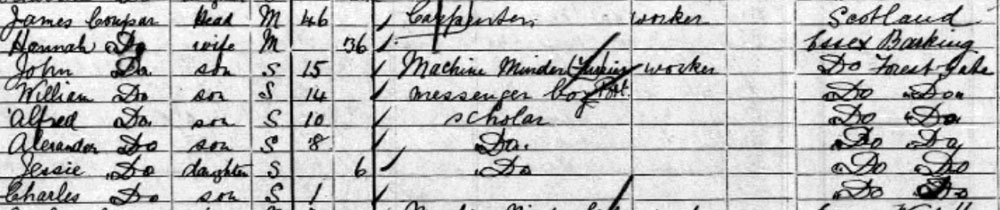 James Coupar Head M 46 Carpenter worker Scotland
Hannah Do wife M 36 Essex Barking
John Do son S 15 Machine Minder worker Do Forest Gate
William Do son S 14 messenger boy Do Do
Alfred Do son S 10 scholar Do Do
Alexander Do son S 8 Do Do Do
Jessie Do daughter S 6 Do Do Do
Charles Do son S 1 Do Do